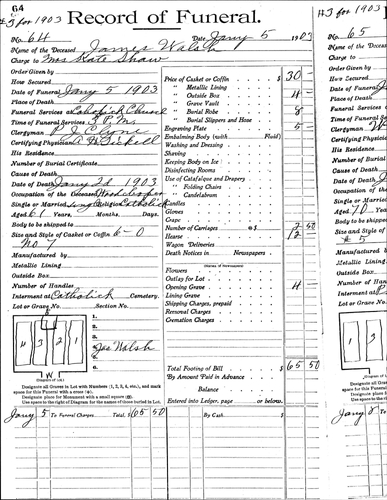 64
#3 for 1903 Record of Funeral.
No. 64 Date, Jany 5 1903
Name of the Deceased James Walsh
Charge to Mrs Kate Shaw
Order Given by
How Secured
Date of Funeral Jany 5 1903
Place of Death
Funeral Services at Catholick Church
Time of Funeral Services 3 P.M.
Clergyman P J Clyne
Certifying Physician A H Tickell
His Residence
Number of Burial Certificate
Cause of Death
Date of Death Jany 2d 1903
Occupation of the Deceased
Single or Married Religion Catholick
Aged 61 Years, Months, Days.
Body to be shipped to
Size and Style of Casket or Coffin 6-0
No 7
Manufactured by
Metallic Lining
Outside Box
Number of Handles
Interment at Catholick Cemetery.
Lot or Grave No. Section No.
Price of Casket or Coffin $ 30 —
" Metallic Lining
" Outside Box 4 —
" Grave Vault
" Burial Robe 8
" Burial Slippers and Hose
Engraving Plate 5
Embalming Body (with Fluid)
Washing and Dressing
Shaving
Keeping Body on Ice
Disinfecting Rooms
Use of Catafalque and Drapery
" Folding Chairs
" Candelabrum
Candles
Gloves
Crape
Number of Carriages @ $ 2 50
Hearse 12 —
Wagon Deliveries
Death Notices in Newspapers
(Names of Newspapers)
Flowers
Outlay for Lot
Opening Grave 4 —
Lining Grave
Shipping Charges, prepaid
Removal Charges
Cremation Charges
Total Footing of Bill $ 65 50
By Amount Paid in Advance
Balance
Entered into Ledger, page or below.
4 3 2 1
W
(Diagram of Lot.)
1.
2.
3.
4. Jas Walsh
5.
6.
Designate all Graves in Lot with Numbers (1, 2, 3, 4, etc.), and mark
space for this Funeral with a cross (+).
Designate place for Monument with a small square (□).
Use space to right of Diagram for the names of those buried in Lot.
Jany 5 To Funeral Charges. Total, $ 65 50 By Cash $
#3 for 1903
No. 65
Name of the Deceased
Charge to
Order Given by
How Secured
Date of Funeral
Place of Death
Funeral Services at
Time of Funeral Services
Clergyman
Certifying Physician
His Residence
Number of Burial Certificate
Cause of Death
Date of Death
Occupation of the Deceased
Single or Married
Aged 70 Years,
Body to be shipped to
Size and Style of Casket
# 5
Manufactured by
Metallic Lining
Outside Box
Number of Handles
Interment at
Lot or Grave No.
4 3 2 1
W
(Diagram of Lot.)
Designate all Graves in Lot
space for this Funeral with
Designate place for Monument
Use space to right of Diagram
Jany 8 To Funeral